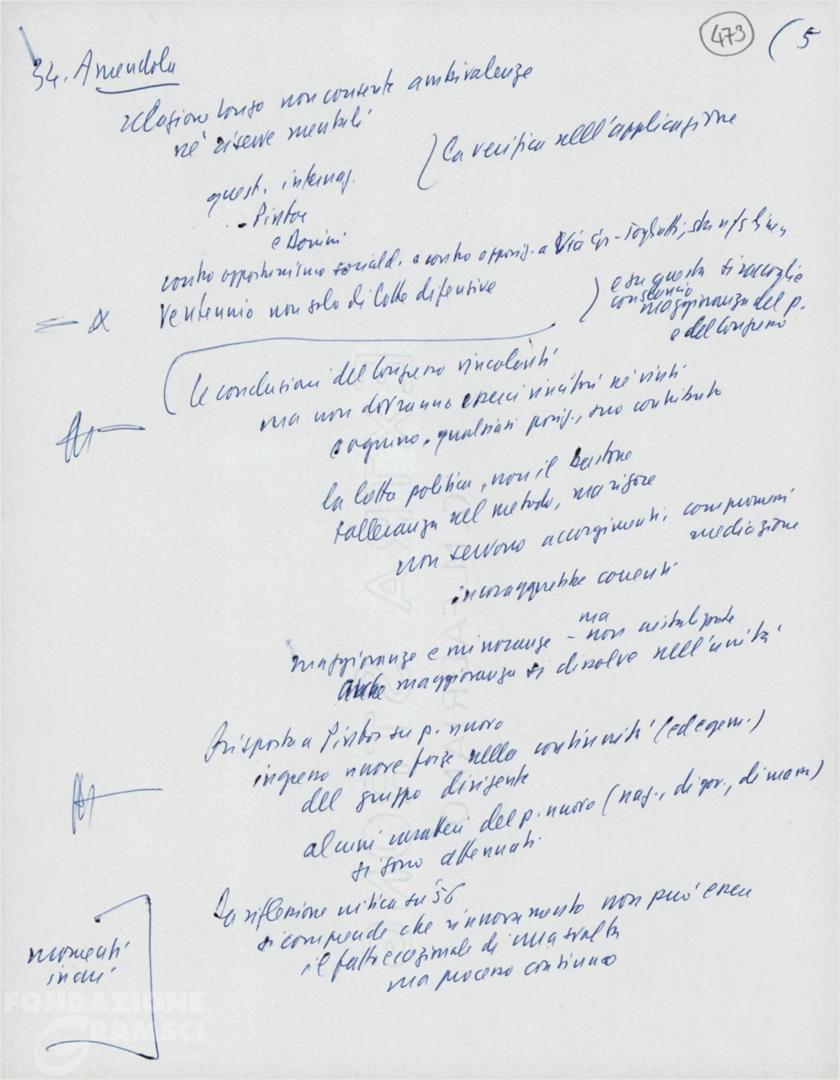 473 (5
34. Amendola
relazione Longo non consente ambivalenze
nè riserve mentali
quest. internaz.
- Pintor
e Donini
) la verifica nell'applicazione
contro opportunismo sociald. e contro opposiz. a via
ventennio non solo di lotte difensive
) e su questa si raccoglie
maggioranza del p.
e del Congresso
= α
le conclusioni del Congresso vincolanti
ma non dovranno esserci vincitori nè vinti
e ognuno, qualsiasi posiz., suo contributo
la lotta politica, non il bastone
tolleranza nel metodo, ma rigore
non servono accorgimenti, compromessi
mediazione
incoraggerebbe correnti
maggioranze e minoranze - ma
non cristallizzate
anche maggioranza si dissolve nell'unità
Risposta a Pintor su p. nuovo
ingresso nuove forze nella continuità (ed egem.)
del gruppo dirigente
alcuni caratteri del p. nuovo (naz., di gov., di mass)
si sono attenuati
Da riflessione critica su 56
si comprende che rinnovamento non può essere
il fatto eccezionale di una svolta
ma processo continuo
momenti
FONDAZIONE
GRAMSCI